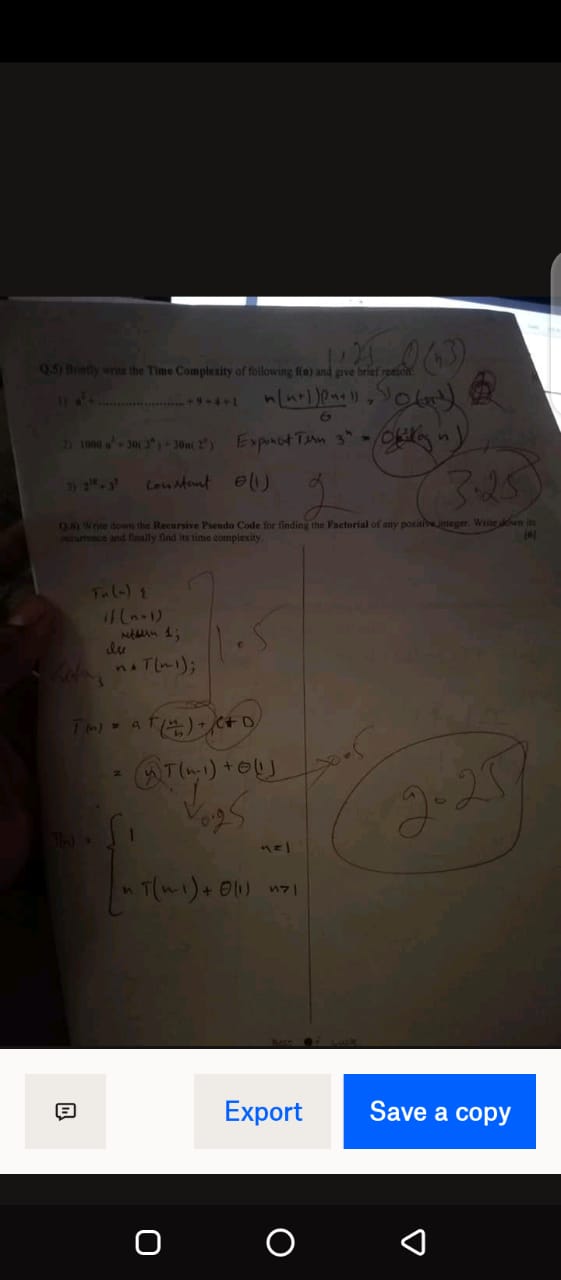 1.25 O(n3)
Q.5) Briefly write the Time Complexity of following f(n) and give brief reason.
1) n² + ........................ + 9 + 4 + 1 n(n+1)(2n+1), O(n³)
6
2) 1000 n² + 30( 3ⁿ ) + 30n( 2ⁿ ) Exponent Term 3ⁿ =
3) 2¹⁰ + 3⁵ Constant θ(1) 2 3.25
Q.6) Write down the Recursive Pseudo Code for finding the Factorial of any positive integer. Write down its
occurrence and finally find its time complexity.
if (n=1)
return 1;
else
n * T(n-1);
1.5
T(n) = a T(n/b) + C + D
= n T(n-1) + θ(1) 0.5
0.25
2.25
T(n) = 1
n=1
n T(n-1) + θ(1) n>1
Best of Luck
Export
Save a copy